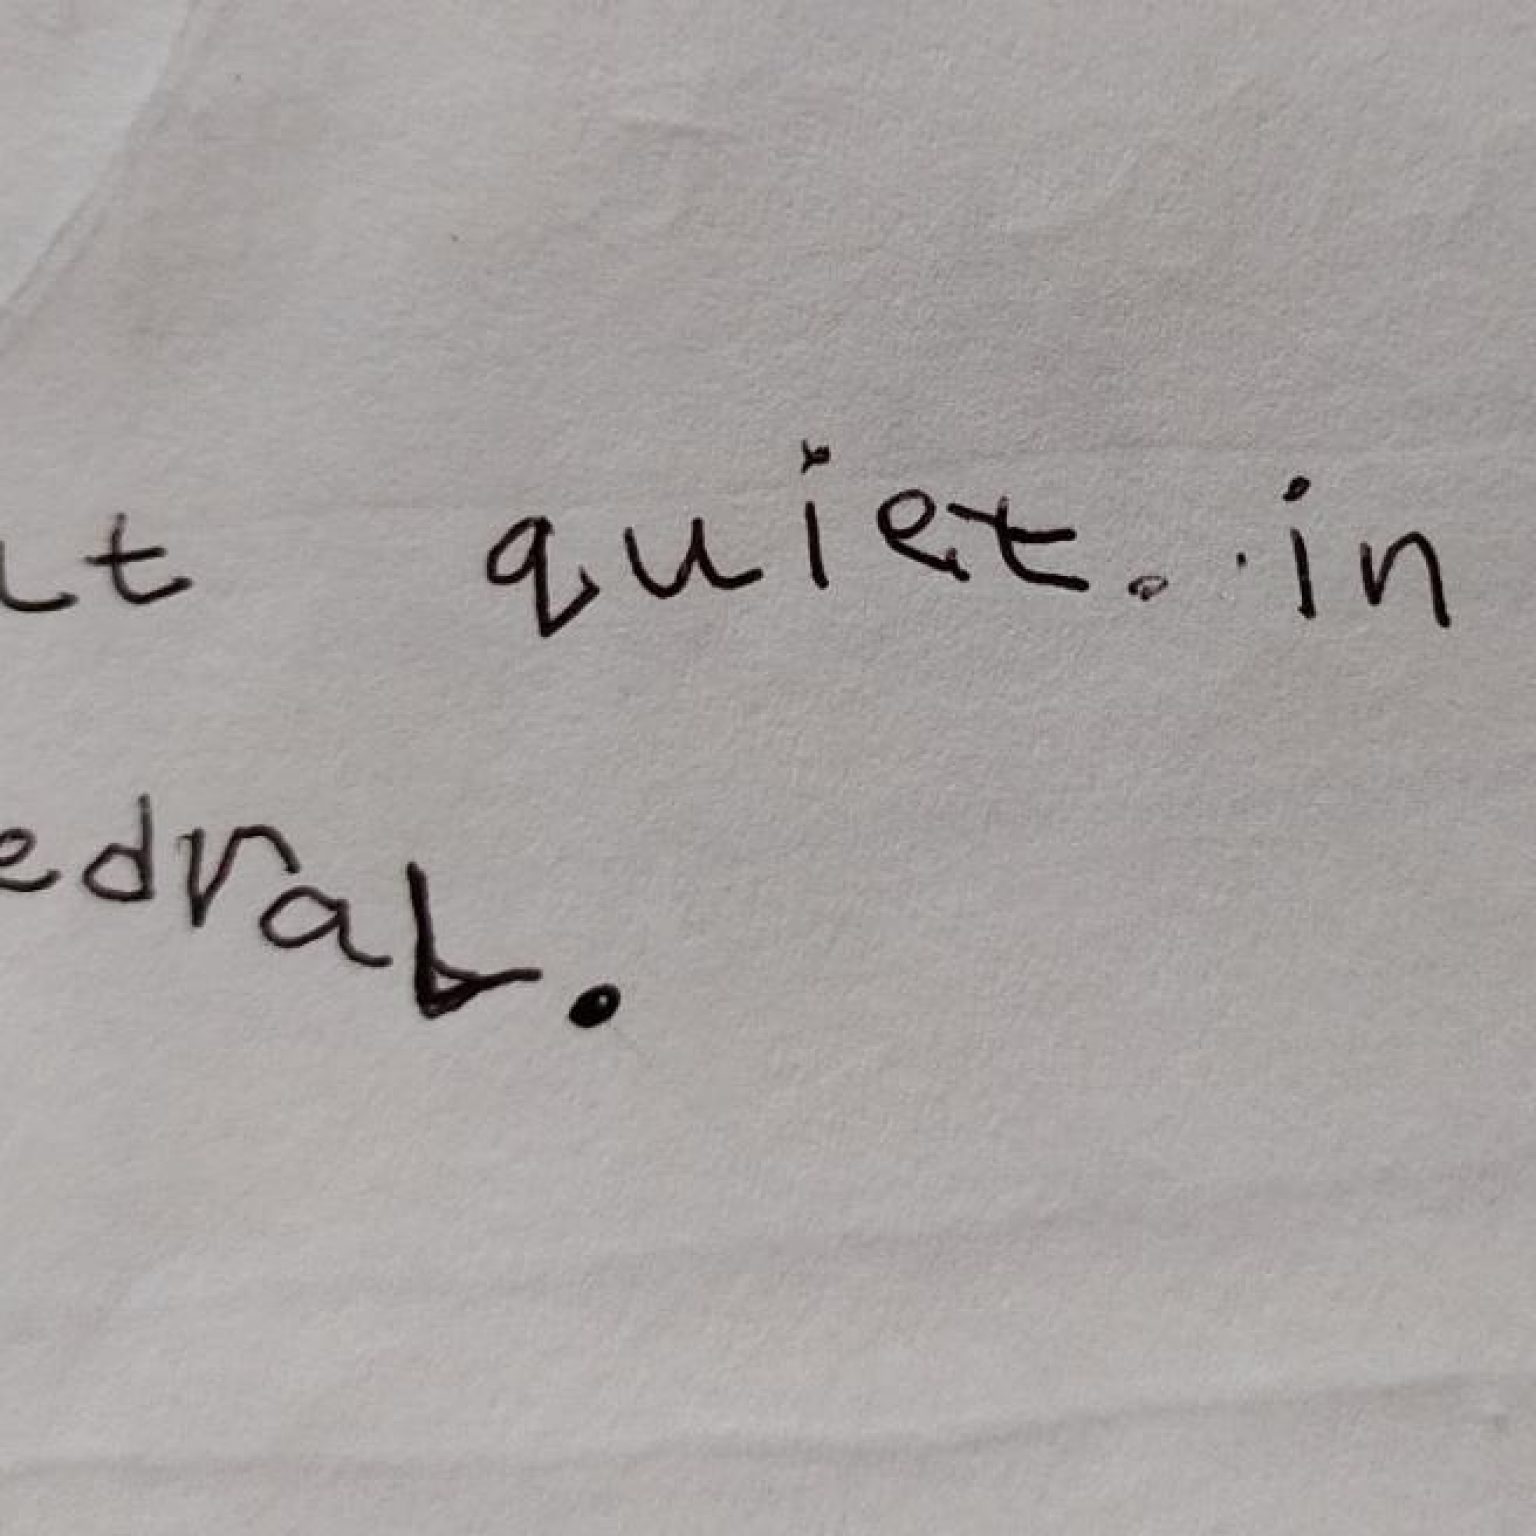 quiet. in
edral.